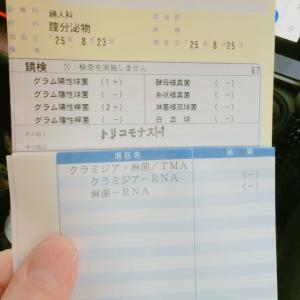 婦人科
膣分泌物
'25年8月23日
'25年8月25
鏡検 N：検査を実施しません 67
グラム陽性球菌 (1+) 酵母様真菌 (-)
グラム陰性球菌 (-) 糸状様真菌 (-)
グラム陽性桿菌 (2+) 淋菌様双球菌 (-)
グラム陰性桿菌 (-) 白血球 (-)
その他1 トリコモナス(-)
その他2
項目名 結果
クラミジア・淋菌／TMA
クラミジア－RNA (-)
淋菌－RNA (-)